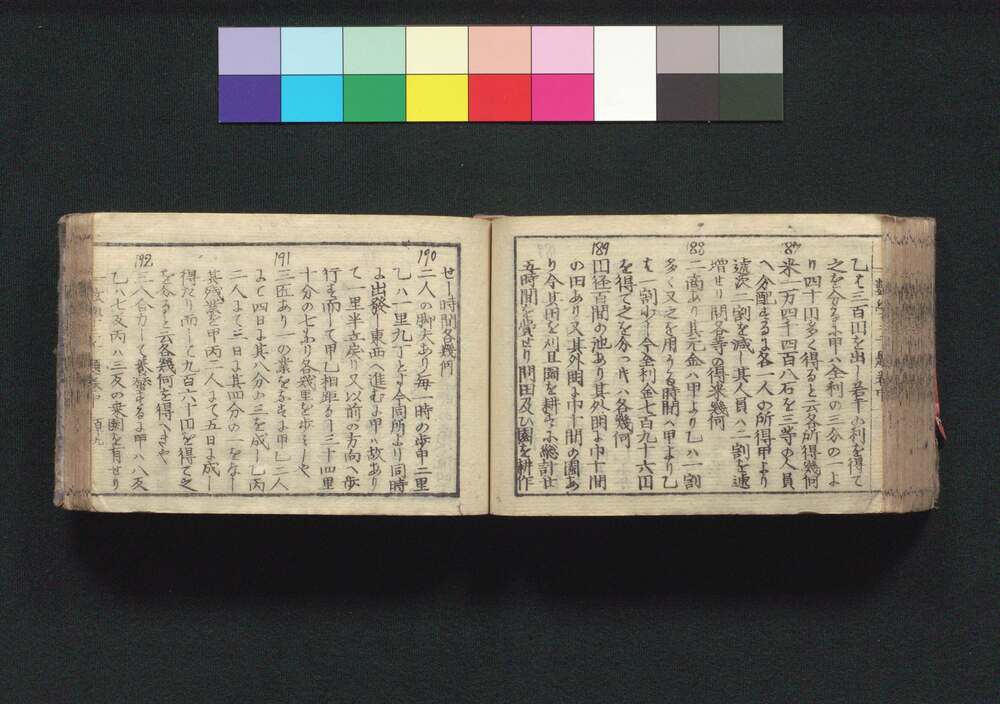 乙ハ三百円を出し若干の利を得て
之を分つに甲ハ全利の三分の一よ
り四十円多く得ると云各所得幾何
187
米一万四千四百八石を三等の人員
へ分配するに各一人の所得甲より
逓次二割を減し其人員ハ二割を逓
増せり問各等の得米幾何
188
二商あり其元金ハ甲より乙ハ一割
多く又之を用うる時間ハ甲より乙
ハ一割少し今全利金七百九十六円
を得て之を分つ片ハ各幾何
189
円径百間の池あり其外囲に巾十間
の田あり又其外囲に巾十間の園あ
り今其田を刈且園を耕すに総計廿
五時間を費せり問田及ひ園を耕作
せし時間各幾何
190
二人の脚夫あり毎一時の歩甲二里
乙ハ一里九丁とす今同所より同時
に出発し東西へ進むに甲ハ故あり
て一里半立戻り又以前の方向へ歩
行す而して甲乙相距る事三十四里
十分の七なり各幾里を歩せしや
191
三匠あり一の業をなすに甲乙二人
にて四日に其八分の三を成し乙丙
二人にて三日に其四分の一をなし
其残業を甲丙二人にて五日に成し
得たり而して九百六十円を得て之
を分つと云各幾何を得へきや
192
三人合力して
乙ハ七友丙ハ三友の乗圖を有せり